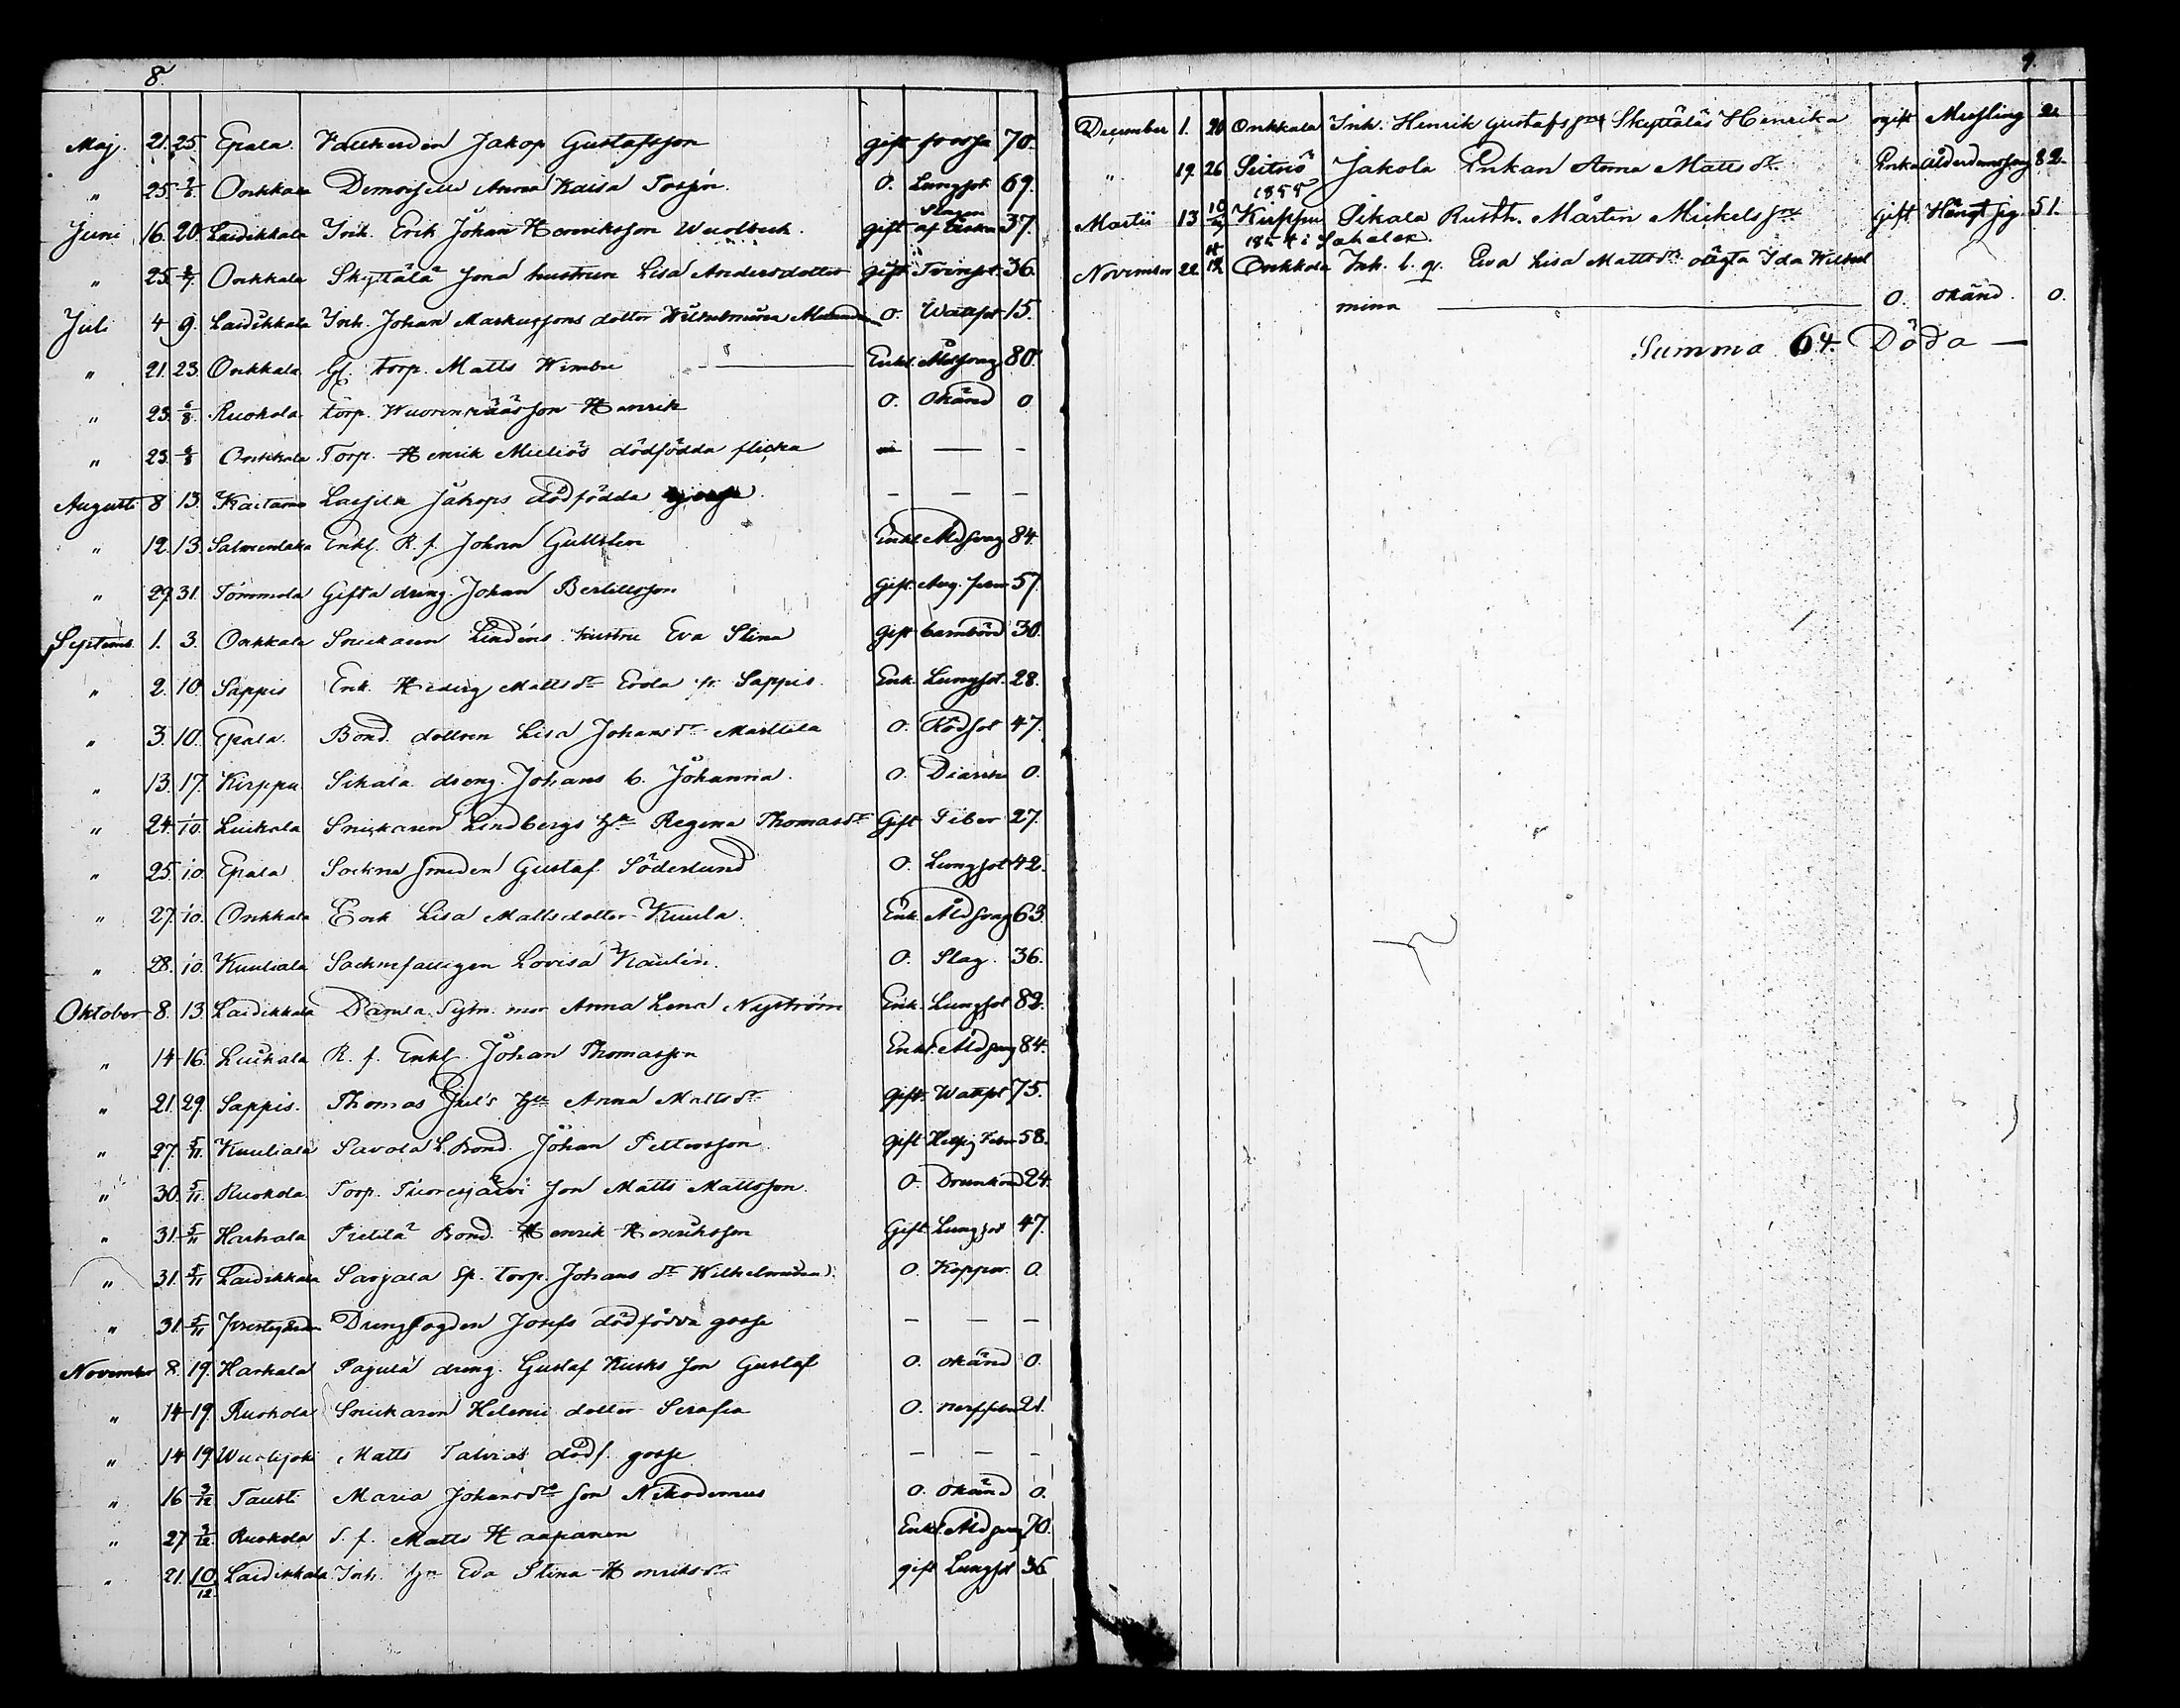 8.
Maj. 21. 25. Epala Jakop Gustafsson gift frossa 70.
" 25. 2/6 Onkkala Demoiselle Anna Kaisa 0. Lungsot 69.
Juni 16. 20. Laidikkala Inh. Erik Johan Henriksson gift Slagen af Åskan 37.
" 25. Onkkala Skyttälä Sona hustrun Lisa Andersdotter gift Tvinsot 36.
Juli 4 9. Laidikkala Inh. Johan Markussons dotter Wilhelmina 0. Wattsot 15.
" 21. 23. Onkkala Gl. torp. Matts Wimbu Enkl. Åldsvag 80.
" 23. 6/8 Ruokola torp. son Henrik 0. Okänd 0
" 23. 6/8 Onkkala Torp. Henrik Mieliös dödfödda flicka — — -
Augusti 8 13. Kaitamo Lassila Jakops dödfödda — — —
" 12. 13. Salmentaka Enkl. R. f. Johan Gullsten Enkl Åldsvag 84.
" 29. 31. Tömmola Gifta dreng. Johan Bertillsson Gift 57.
Septemb. 1. 3. Onkkala Snickaren Lindéns hustru Eva Stina gift barnbörd 30.
" 2. 10. Sappis Enk. Hedvig Mattsdr Erola fr. Sappis. Enk. Lungsot. 28.
" 3. 10. Epala Bond. dottren Lisa Johansdr Marttila 0. Rödsot 47.
" 13. 17. Kirppu Sikala dreng. Johans b. Johanna. 0. Diarrhe 0.
" 24. 1/10. Luikala Snickaren Lindbergs hu Regina Thomasdr Gift Feber 27.
" 25. 1/10. Epala Sockne smeden Gustaf Söderlund 0. Lungsot 42.
" 27. 1/10. Onkkala Enk Lisa Mattsdotter Kuula Enk. Åldsvag 63.
" 28. 1/10. Kuuliala Socknefattigen Lovisa Kaulin. 0. Slag. 36.
Oktober 8. 13. Laidikkala Danila Sytn. mor Anna Lena Nyström Enk. Lungsot 82.
" 14 16. Luikala R. f. Enkl. Johan Thomasson Enkl. Åldsvag 84.
" 21. 29. Sappis. Thomas Juls hu Anna Mattsdr gift. Wattsot 75.
" 27. 5/11. Kuuliala Savola L. Bond. Johan Pettersson gift Hetsig Feber 58.
" 30. 5/11. Ruokola Torp. son Matts Mattsson. 0. Drunknad 24.
" 31. 5/11 Harhala Pietilä Bond. Henrik Henriksson Gift. Lungsot 47.
" 31. 5/11 Laidikkala Sarjala Sp. torp. Johans dr Wilhelmina. 0. Koppor. 0.
" 31. 5/11 Prestegården Drengfogden Josefs dödfödda gosse — — —
November 8. 19. Harhala Pajula dreng. Gustaf Kusks son Gustaf 0. okänd 0.
" 14 19. Ruokola Snickaren Helenii dotter Serafia 0. 21.
" 14 19. Wuolijoki Matts Talvias dödf. gosse — — —
" 16 3/12 Tausti Maria Johansdrs son Nikodemus 0. okänd 0.
" 27 3/12. Ruokola S. f. Matts Haapanen Enkl. Åldsvag 70.
" 21. 10/12. Laidikkala Inh. hu Eva Stina Henriksdr gift Lungsot 36
9.
December 1. 20 Onkkala Inh. Henrik Gustafsson Skyttäläs Henrika ogift Messling 21.
" 19. 26. Seitriö Jakola Enkan Anna Matts dr. Enka ålderdomssvag 82.
1855
Martii 13 Kirppu Sikala Rusth. Mårten Mickelsson Gift Hängt sig. 51.
1854 i Sahalax.
November 22 Onkkola Inh. l. q. Eva Lisa Mattsdrs oägta Ida Wilhel
mina 0. okänd. 0.
Summa 64. Döda —